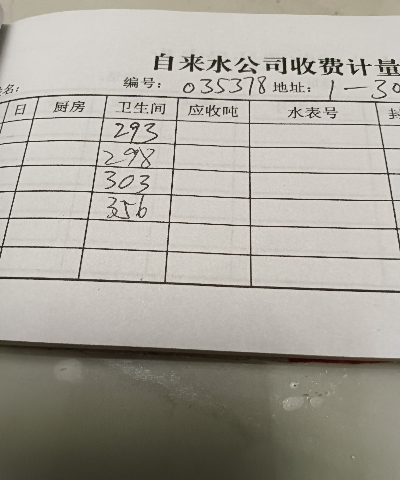 自来水公司收费计量
名: 编号: 035378 地址: 1-30
日 厨房 卫生间 应收吨 水表号
293
298
303
356